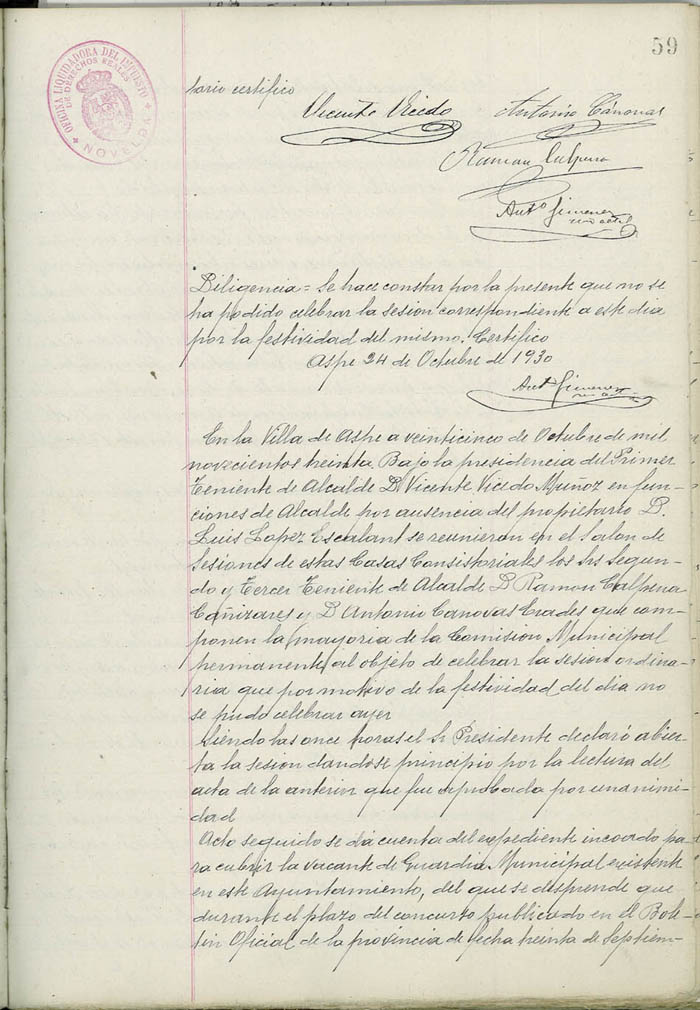 59
OFICINA LIQUIDADORA DEL IMPUESTO
DE DERECHOS REALES
NOVELDA
tario certifico
Vicente Vicedo Antonio Cánovas
Ramon Calpena
Antº Gimenez
Diligencia = Se hace constar por la presente que no se
ha podido celebrar la sesion correspondiente a este dia
por la festividad del mismo. Certifico
Aspe 24 de Octubre de 1930
Antº Gimenez
En la Villa de Aspe a veinticinco de Octubre de mil
novecientos treinta. Bajo la presidencia del Primer
Teniente de Alcalde D. Vicente Vicedo Muñoz en fun-
ciones de Alcalde por ausencia del propietario D.
Luis Lopez Escalant se reunieron en el Salon de
Sesiones de estas Casas Consistoriales los srs Segun-
do y Tercer Teniente de Alcalde D Ramon Calpena
Cañizares y D Antonio Canovas Erades que com-
ponen la mayoria de la Comision Municipal
permanente al objeto de celebrar la sesion ordina-
ria que por motivo de la festividad del dia no
se pudo celebrar ayer
Siendo las once horas el Sr Presidente declaró abier-
ta la sesion dandose principio por la lectura del
acta de la anterior que fue aprobada por unanimi-
dad
Acto seguido se da cuenta del expediente incoado pa-
ra cubrir la vacante de Guardia Municipal existente
en este Ayuntamiento, del que se desprende que
durante el plazo del concurso publicado en el Bole-
tin Oficial de la provincia de fecha treinta de Septiem-